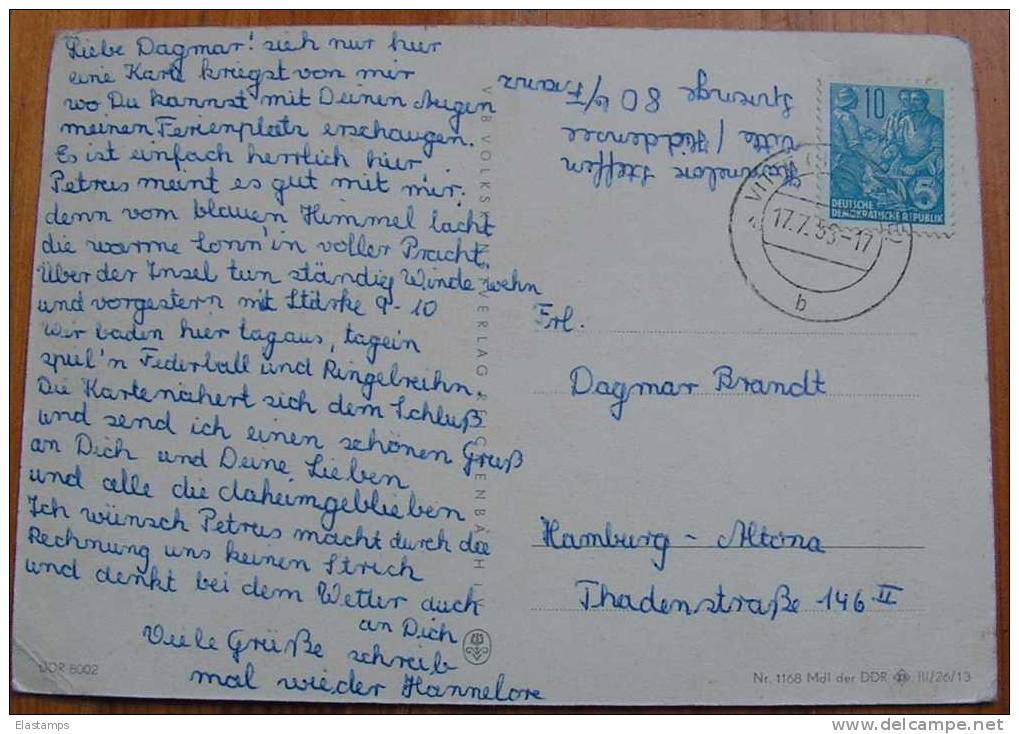 Liebe Dagmar! sieh nur hier
eine Karte kriegst von mir
wo Du kannst mit Deinen Augen
meinen Ferienplatz erschaugen.
Es ist einfach herrlich hier
Petrus meint es gut mit mir.
denn vom blauen Himmel lacht
die warme Sonn' in voller Pracht
Über der Insel tun ständig Winde wehn
und vorgestern mit Stärke 9-10
Wir baden hier tagaus, tagein
spiel'n Federball und Ringelreihn.
Die Karte nähert sich dem Schluß
und send ich einen schönen Gruß
an Dich und Deine Lieben
und alle die daheimgeblieben
Ich wünsch Petrus macht durch die
Rechnung uns keinen Strich
und denkt bei dem Wetter auch
an Dich
Viele Grüße schreib
mal wieder Hannelore
DDR 8002
VEB VOLKSKUNSTVERLAG REICHENBACH
Hannelore Steffen
Vitte / Hiddensee
Sprenge 80 b/Franz
10
5
DEUTSCHE
DEMOKRATISCHE REPUBLIK
17.7.58-17
b
Frl.
Dagmar Brandt
Hamburg - Altona
Thadenstraße 146 II
Nr. 1168 MdI der DDR III/26/13
Elastamps
www.delcampe.net